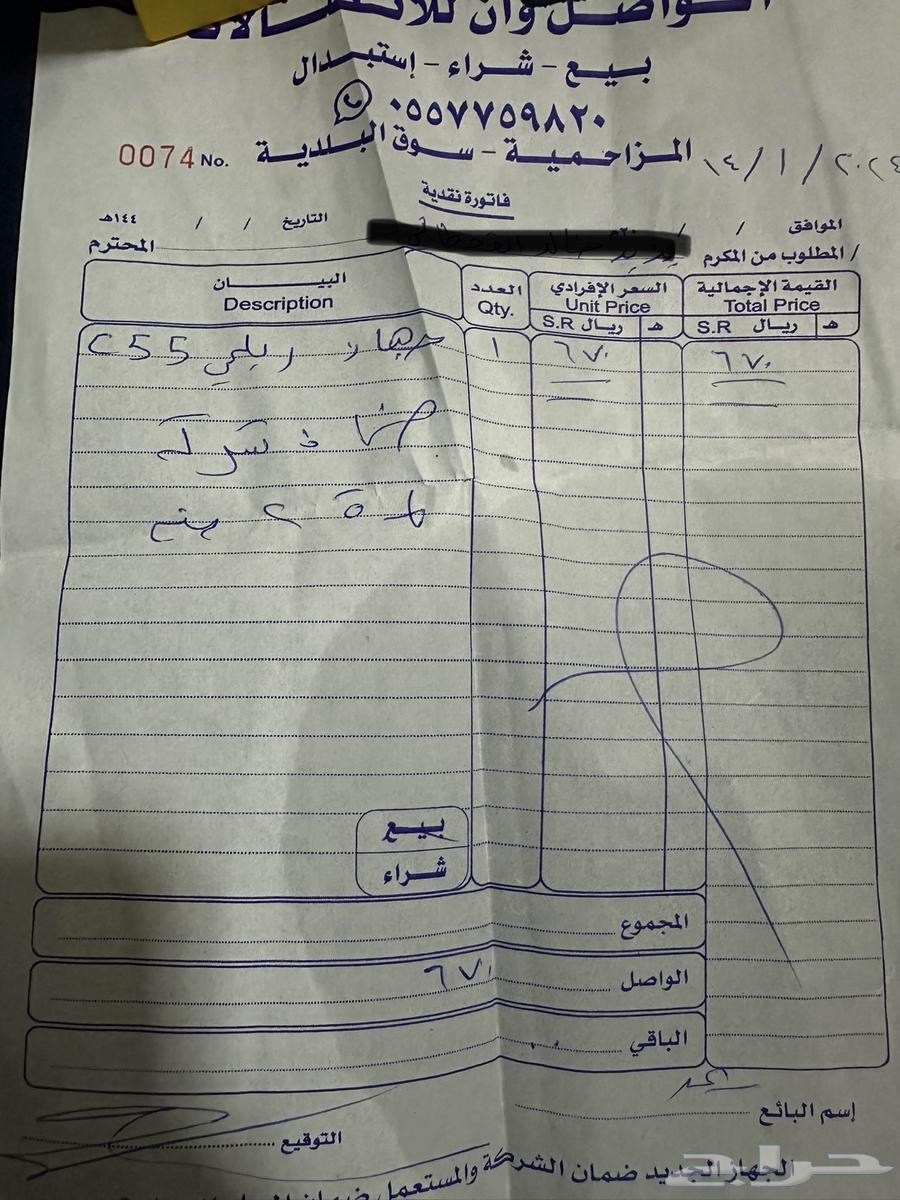 التواصل وان للاتصالات
بيـع - شراء - إستبدال
٠٥٥٧٧٥٩٨٢٠
المزاحمية - سوق البلدية
0074 No.
١٤/١/٢٠٢٤
فاتورة نقدية
التاريخ / / ١٤٤هـ
الموافق / /
المطلوب من المكرم / المحترم
البيــان العدد السعر الإفرادي القيمة الإجمالية
Description Qty. Unit Price Total Price
ريال S.R هـ ريال S.R هـ
جهاز ريلمي C55 ١ ٦٧٠ ٦٧٠
ضمان شركة
لمدة ٢ سنه
بيـع
شراء
المجموع
الواصل ٦٧٠
الباقي ..
إسم البائع
التوقيع
الجهاز الجديد ضمان الشركة والمستعمل ضمان
حراج